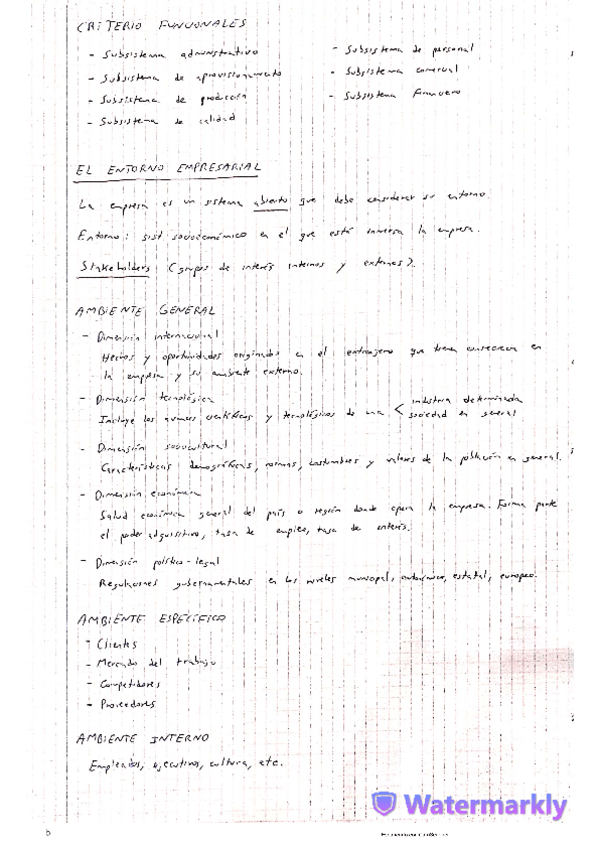 CRITERIO FUNCIONALES
- Subsistema administrativo
- Subsistema de aprovisionamiento
- Subsistema de producción
- Subsistema de calidad
- Subsistema de personal
- Subsistema comercial
- Subsistema financiero
EL ENTORNO EMPRESARIAL
La empresa es un sistema abierto que debe considerar su entorno.
Entorno: sist socioeconómico en el que está inmersa la empresa.
Stakeholders (grupos de interés internos y externos).
AMBIENTE GENERAL
- Dimensión internacional
Hechos y oportunidades originados en el extranjero que tienen en
la empresa y su ambiente externo.
- Dimensión tecnológica
Incluye los avances científicos y tecnológicos de una < industria determinada
sociedad en general
- Dimensión sociocultural
Características demográficas, normas, costumbres y valores de la población en general.
- Dimensión económica
Salud económica general del país o región donde opera la empresa. Forma parte
el poder adquisitivo, tasa de empleo, tasa de interés.
- Dimensión político-legal
Regulaciones gubernamentales en los niveles municipal, autonómico, estatal, europeo.
AMBIENTE ESPECÍFICO
- Clientes
- Mercado del trabajo
- Competidores
- Proveedores
AMBIENTE INTERNO
Empleados, ejecutivos, cultura, etc.
Watermarkly